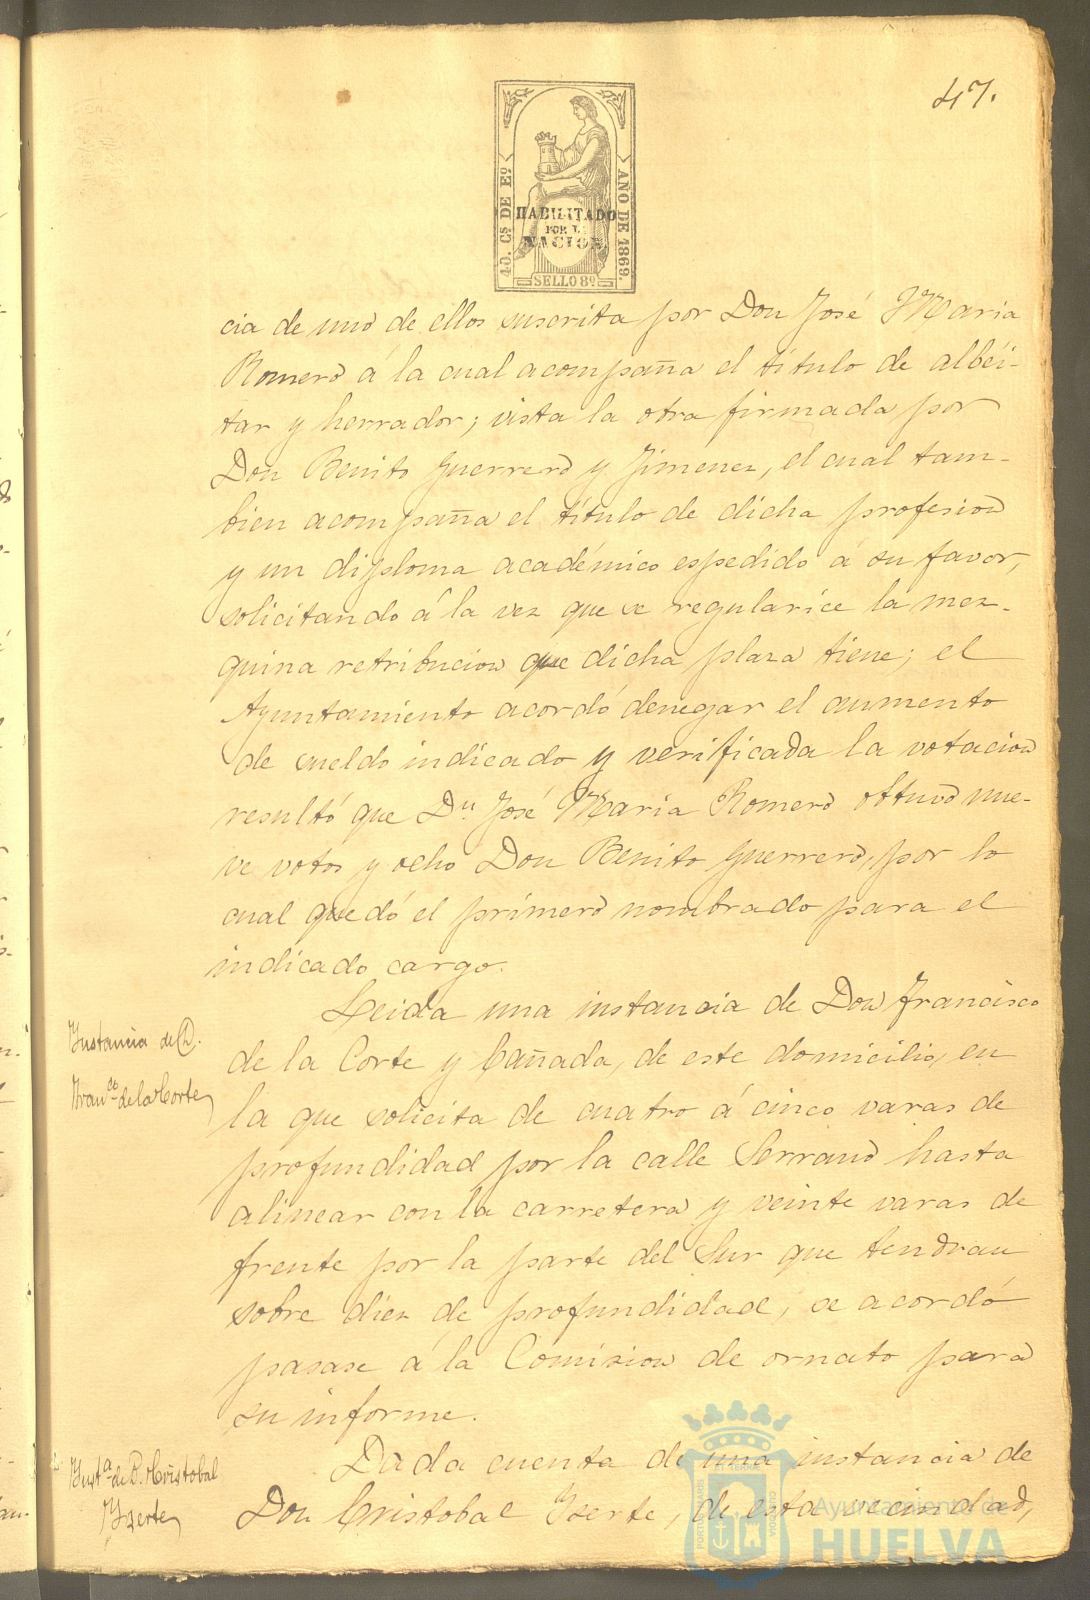 47.
40. Cs DE Eº
AÑO DE 1869.
HABILITADO
POR L
NACION
SELLO 8º
cia de uno de ellos suscrita por Don José Maria
Romero á la cual acompaña el título de albéi-
tar y herrador; vista la otra firmada por
Don Benito Guerrero y Jimenez, el cual tam-
bien acompaña el título de dicha profesion
y un diploma académico espedido á su favor,
solicitando á la vez que se regularice la mez-
quina retribucion que dicha plaza tiene; el
Ayuntamiento acordó denegar el aumento
de sueldo indicado y verificada la votacion
resultó que Dn José Maria Romero obtuvo nue-
ve votos y ocho Don Benito Guerrero, por lo
cual quedó el primero nombrado para el
indicado cargo.
Instancia de D.
Franco de la Corte
Leida una instancia de Don Francisco
de la Corte y Cañada, de este domicilio, en
la que solicita de cuatro á cinco varas de
profundidad por la calle Serrano hasta
alinear con la carretera y veinte varas de
frente por la parte del Sur que tendran
sobre diez de profundidad, se acordó
pasase á la Comision de ornato para
su informe.
Insta de D. Cristobal
Yzerte
Dada cuenta de una instancia de
Don Cristobal Yzerte, de esta vecindad,
Ayuntamiento de
HUELVA